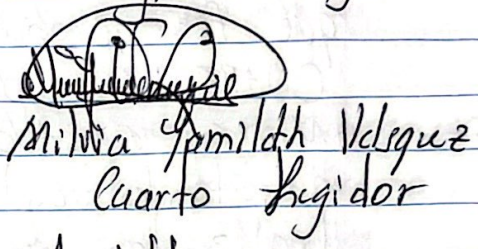 Milvia Yamileth Vasquez
Cuarto Regidor